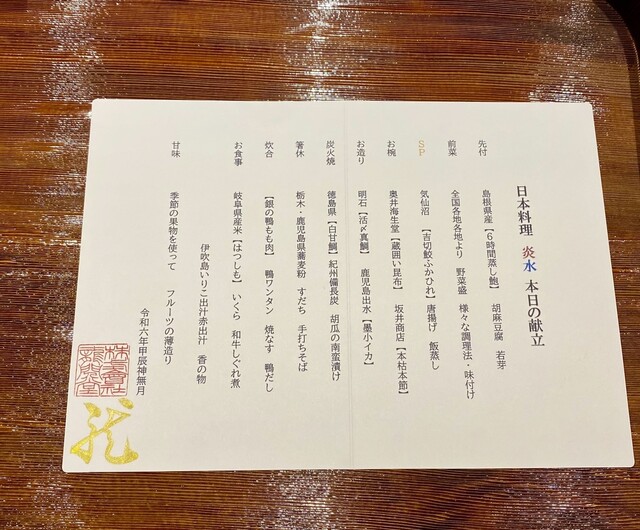 日本料理 炎水 本日の献立
先付 島根県産【6時間蒸し鮑】 胡麻豆腐 若芽
前菜 全国各地各地より 野菜盛 様々な調理法・味付け
SP 気仙沼 【吉切鮫ふかひれ】唐揚げ 飯蒸し
お椀 奥井海生堂【蔵囲い昆布】 坂井商店【本枯本節】
お造り 明石【活〆真鯛】 鹿児島出水【墨小イカ】
炭火焼 徳島県【白甘鯛】紀州備長炭 胡瓜の南蛮漬け
箸休 栃木・鹿児島県蕎麦粉 すだち 手打ちそば
炊合 【銀の鴨もも肉】 鴨ワンタン 焼なす 鴨だし
お食事 岐阜県産米【はつしも】 いくら 和牛しぐれ煮
伊吹島いりこ出汁赤出汁 香の物
甘味 季節の果物を使って フルーツの薄造り
令和六年甲辰神無月